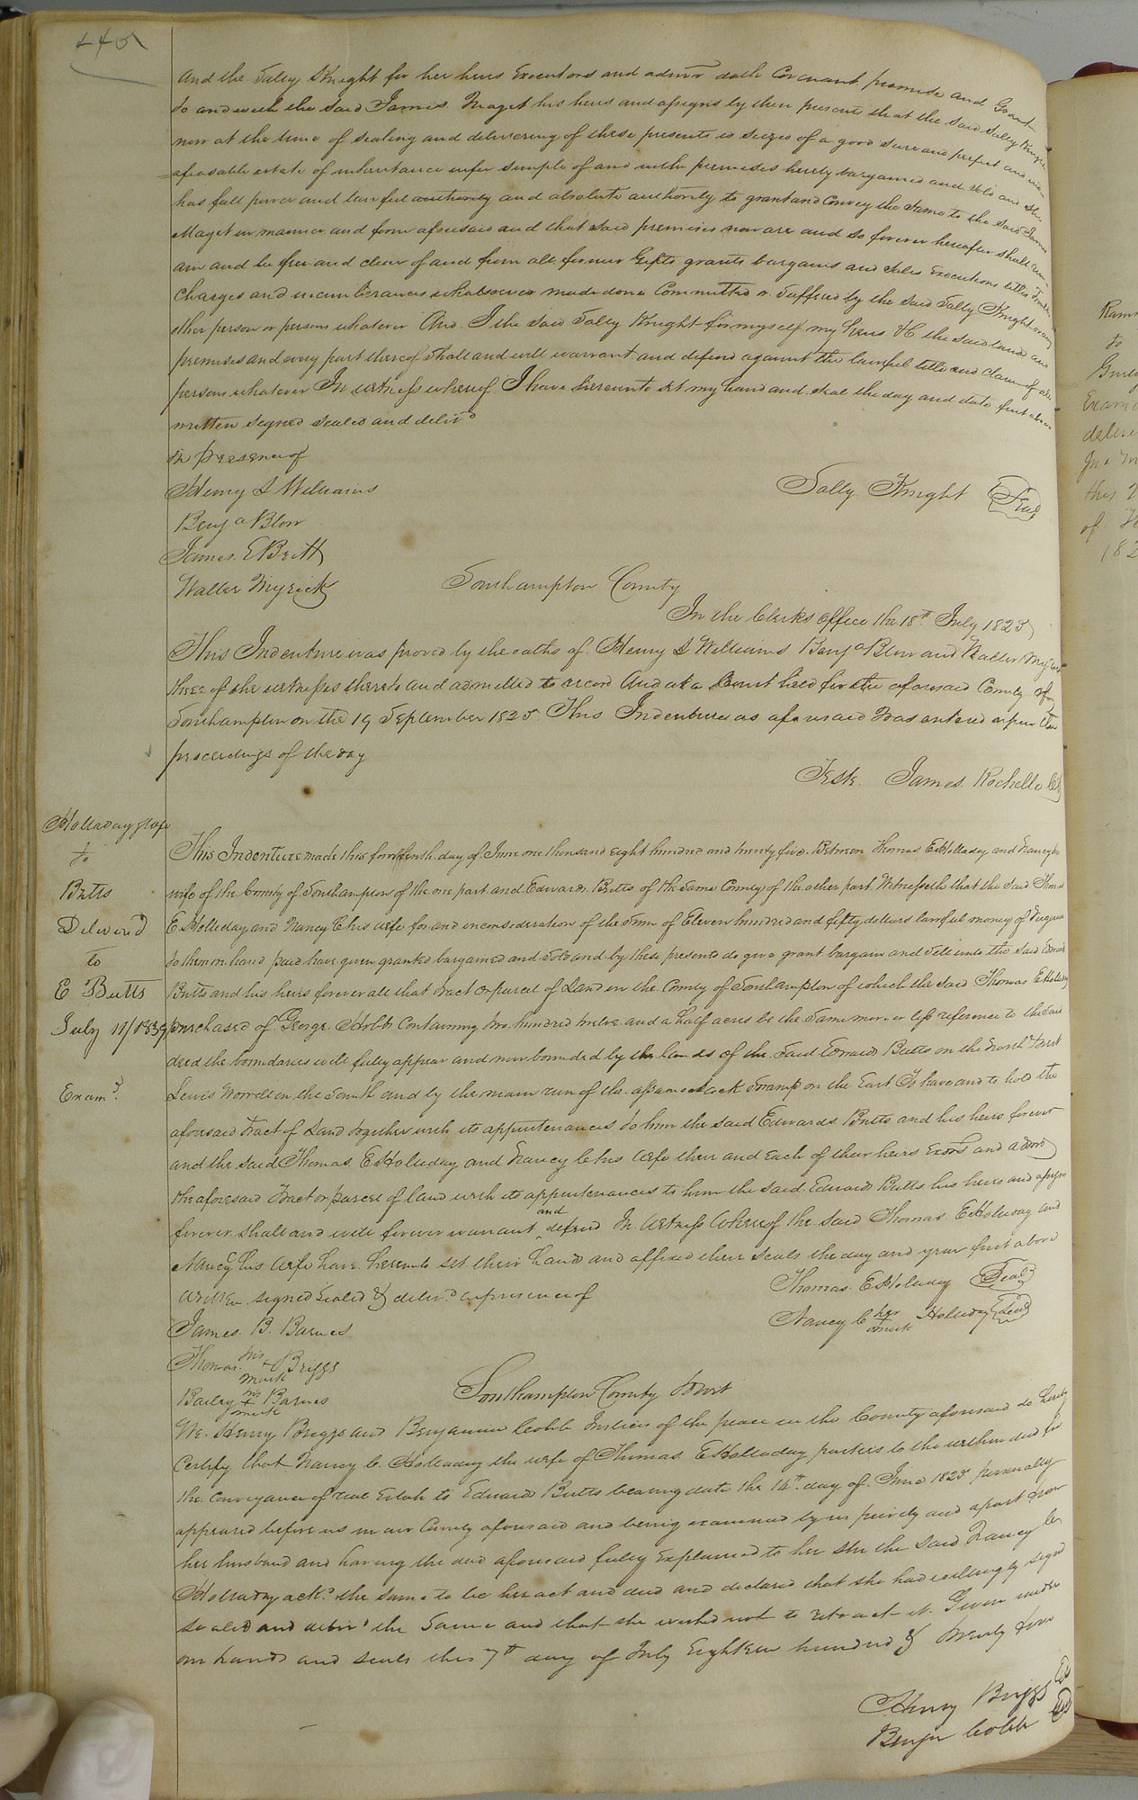 and the Sally Knight for her heirs Executors and admrs doth Covenant promise and Grant
to and with the said James Maget his heirs and assigns by these presents that the said Sally Knight
now at the time of sealing and delivering of these presents is seized of a good sure and perfect and
afeasable estate of inheritance in fee simple of and in the premises hereby bargained and sold and she
has full power and lawful authority and absolute authority to grant and Convey the same to the said James
Maget in manner and form aforesaid and that said premises now are and so forever hereafter shall
am and be free and clear of and from all former Gifts grants bargains and Sales Executions titles
Charges and incumberances whatsoever made done Committed or Suffered by the said Sally Knight or any
other person or persons whatever And I the said Sally Knight for myself my heirs &C the said land and
premises and every part thereof shall and will warrant and defend against the lawful title and claim of all
persons whatever In witness whereof I have hereunto set my hand and seal the day and date first above
written signed sealed and delivd
in presence of
Henry S Williams
Sally Knight Seal
Benja Blow
James E Britt
Walter Myrick
Southampton County
In the Clerks office the 18th July 1825
This Indenture was proved by the oaths of Henry S Williams Benja Blow and Walter Myrick
three of the witnesses thereto and admitted to record And at a Court held for the aforesaid County of
Southampton on the 19 September 1825 This Indenture as aforesaid was entered as per the
proceedings of the day
Teste. James Rochelle Clk
Holladay & wife
to
Butts
Delivered
to
E Butts
July 11/1839
Examd
This Indenture made this fourteenth day of June one thousand eight hundred and twenty five. Between Thomas E Holladay and Nancy his
wife of the County of Southampton of the one part and Edward Butts of the same County of the other part Witnesseth that the said Thomas
E Holladay and Nancy C his wife for and in consideration of the sum of Eleven hundred and fifty dollars lawful money of Virginia
to them in hand paid have given granted bargained and sold and by these presents do give grant bargain and sell unto the said Edward
Butts and his heirs forever all that tract or parcel of Land in the County of Southampton of which the said Thomas E Holladay
purchased of George Hobb Containing two hundred twelve and a half acres be the same more or less reference to the said
deed the boundaries will fully appear and now bounded by the lands of the said Edward Butts on the North West
Lewis Worrell on the South and by the main run of the Assamoosack Swamp on the East To have and to hold the
aforesaid tract of Land together with its appurtenances to him the said Edward Butts and his heirs forever
and the said Thomas E Holladay and Nancy C his wife their and each of their heirs Exors and admrs
the aforesaid tract or parcel of land with its appurtenances to him the said Edward Butts his heirs and assigns
forever shall and will forever warrant and defend In Witness Whereof the said Thomas E Holladay and
Nancy C his wife have hereunto set their hands and affixed their seals the day and year first above
written signed sealed & delivd in presence of
Thomas E Holladay Seal
James B. Barnes
Nancy C her mark Holladay Seal
Thomas his + mark Briggs
Bailey his + mark Barnes
Southampton County towit
We Henry Briggs and Benjamin Cobb Justices of the peace in the County aforesaid do hereby
Certify that Nancy C. Holladay the wife of Thomas E Holladay parties to the within deed for
the conveyance of real Estate to Edward Butts bearing date the 14th day of June 1825 personally
appeared before us in our County aforesaid and being examined by us privily and apart from
her husband and having the deed aforesaid fully Explained to her she the said Nancy C
Holladay ackd the same to be her act and deed and declared that she had willingly signed
sealed and delivd the same and that she wished not to retract it. Given under
our hands and seals this 7th day of July Eighteen hundred & twenty five
Henry Briggs
Benjn Cobb